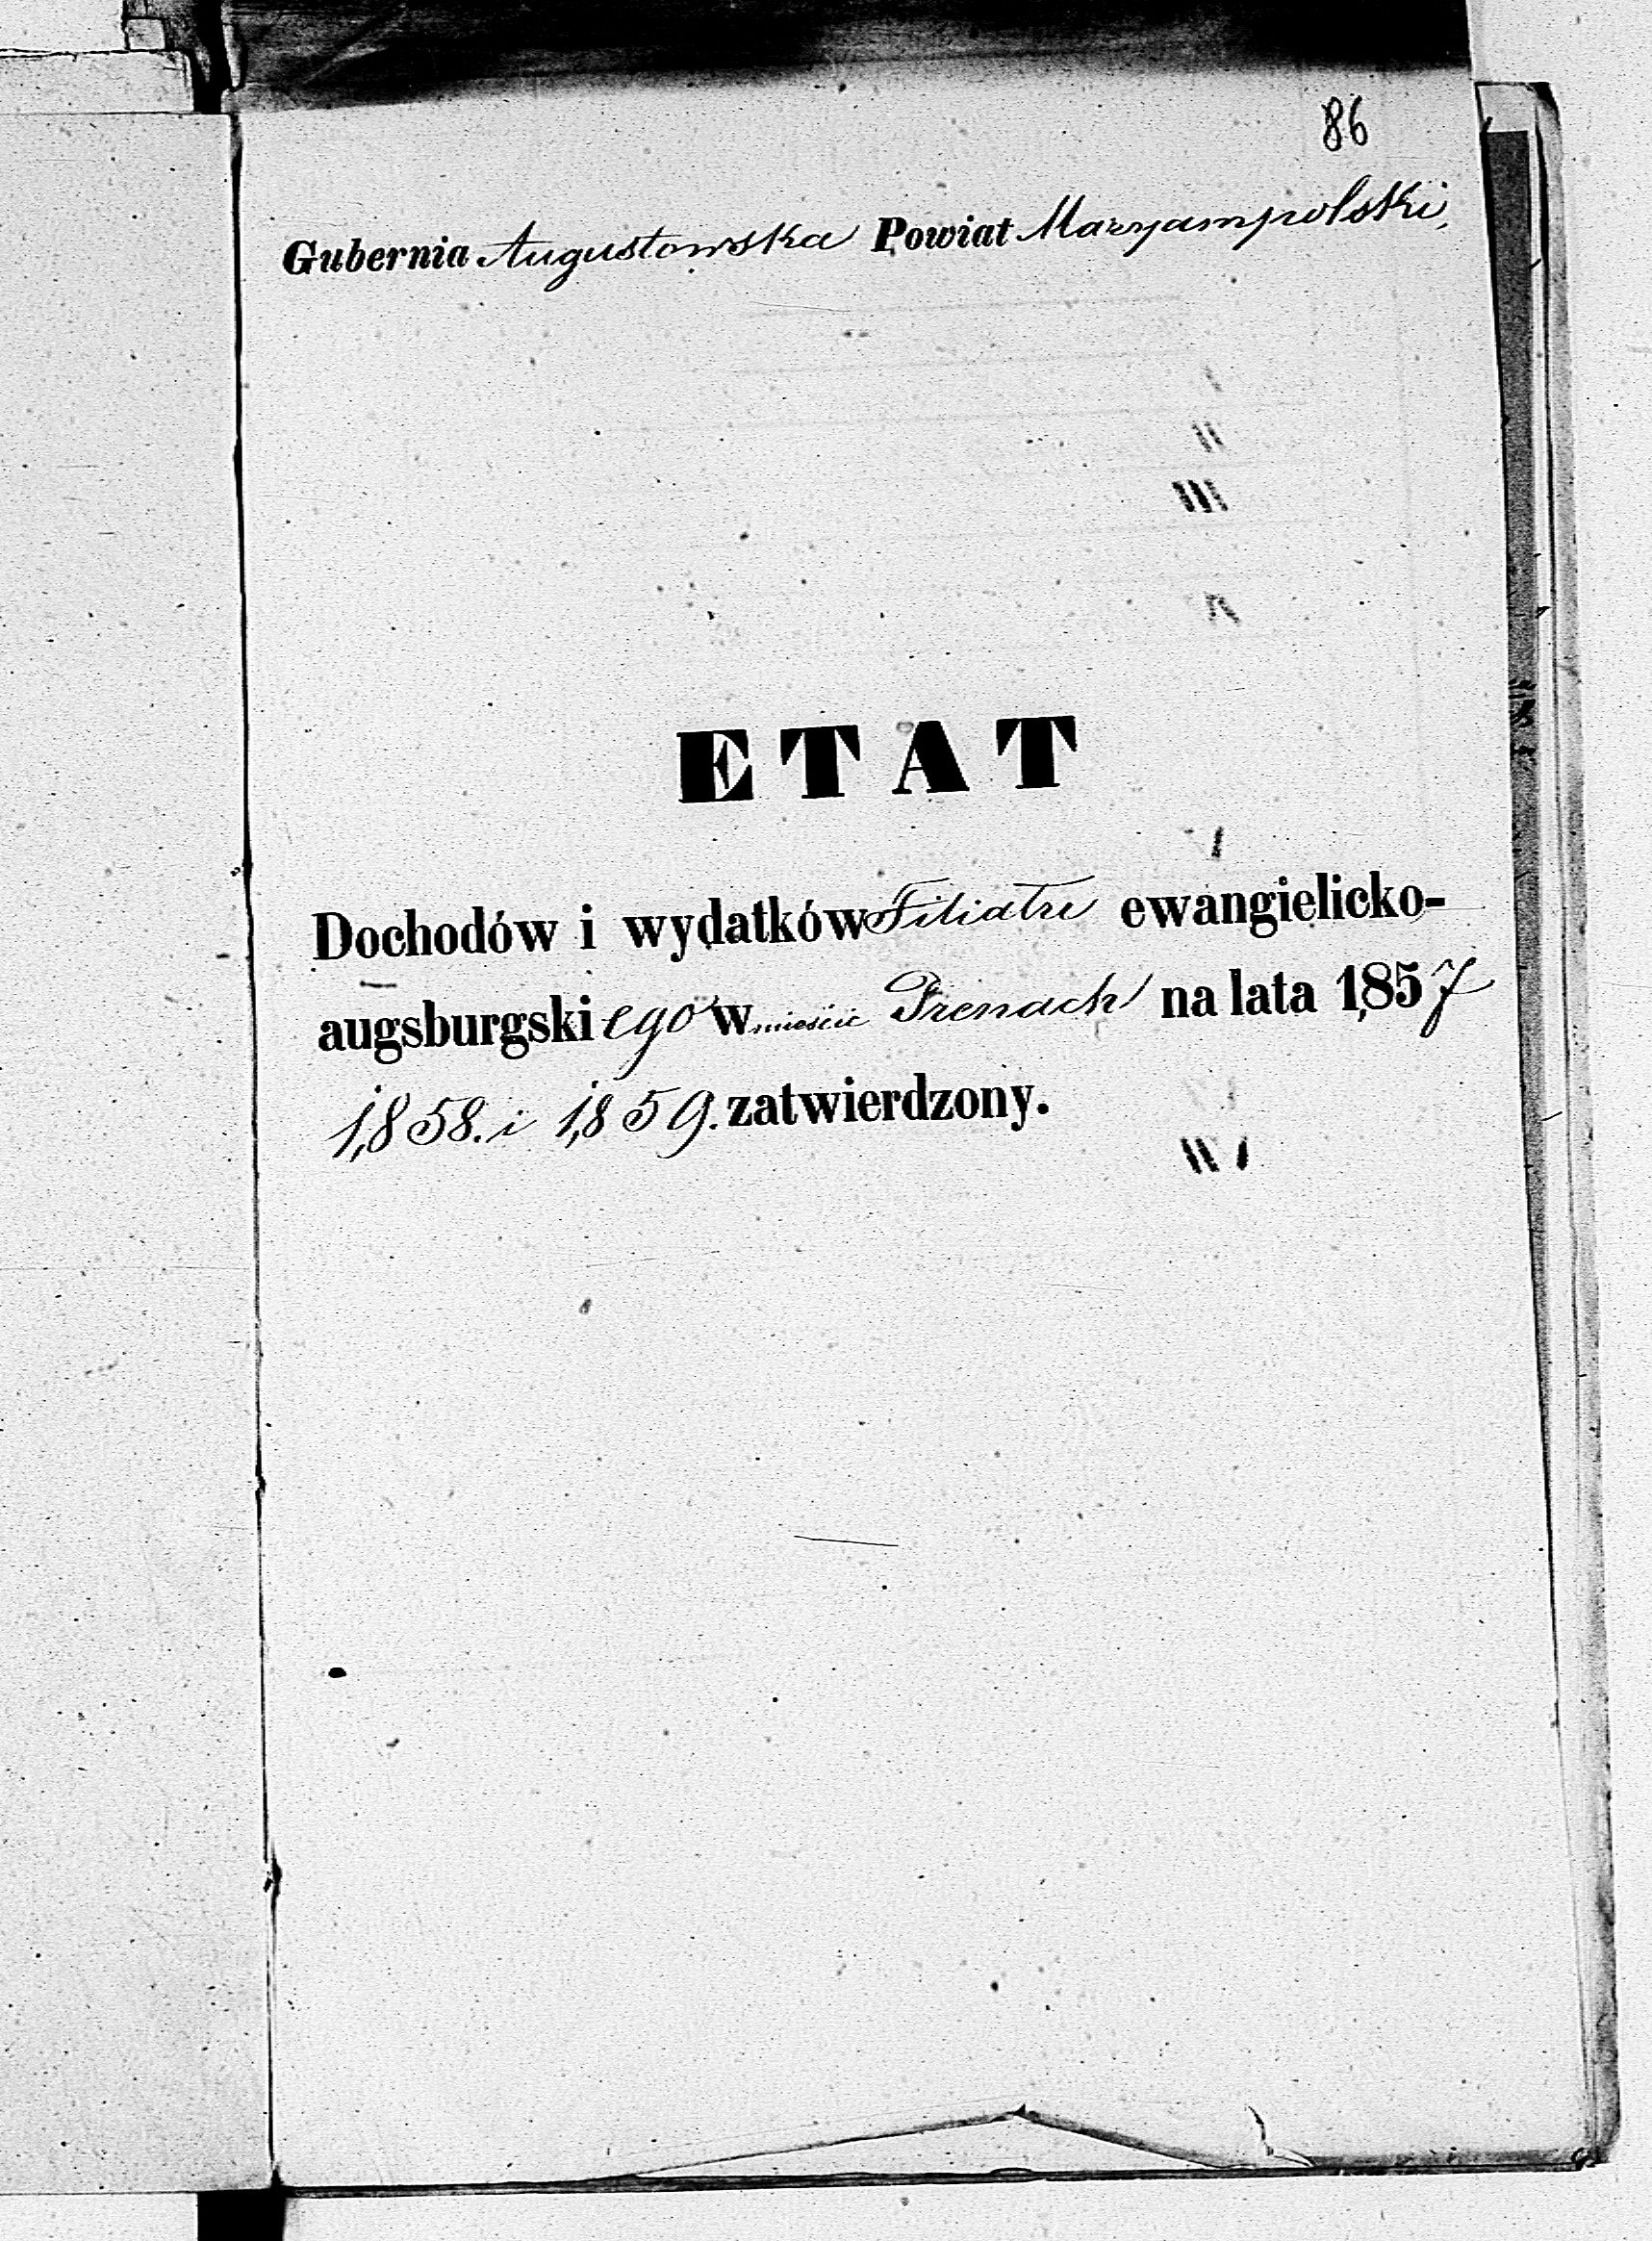 86
Gubernia Augustowska Powiat Maryampolski,
ETAT
Dochodów i wydatków Filiału ewangielicko-
augsburskiego w mieście Prenach na lata 1857
1858. i 1859. zatwierdzony.